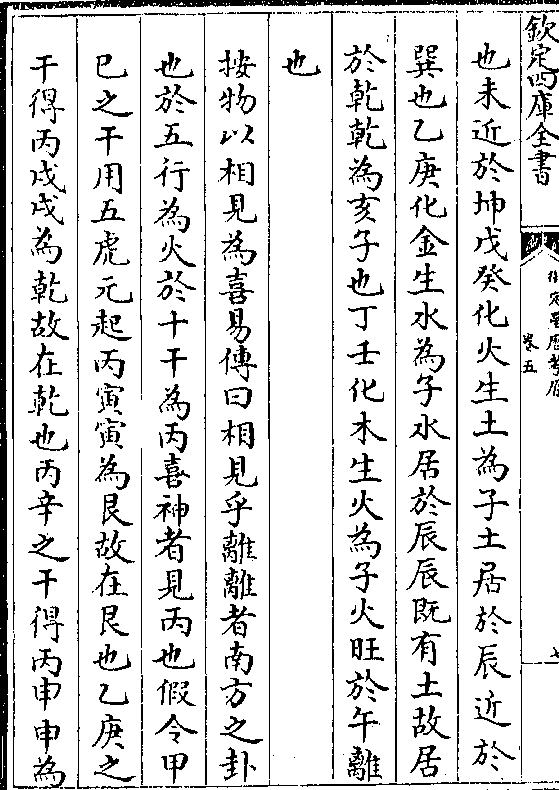 欽定四庫全書
卷五
也未近於坤戊癸化火生土為子土居於辰近於
巽也乙庚化金生水為子水居於辰辰既有土故居
於乾乾為亥子也丁壬化木生火為子火旺於午離
也
按物以相見為喜易傳曰相見乎離離者南方之卦
也於五行為火於十干為丙喜神者見丙也假令甲
巳之干用五虎元起丙寅寅為艮故在艮也乙庚之
干得丙戌戌為乾故在乾也丙辛之干得丙申申為